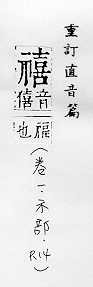 重訂直音篇
禧音僖福也(卷一·示部·R14)